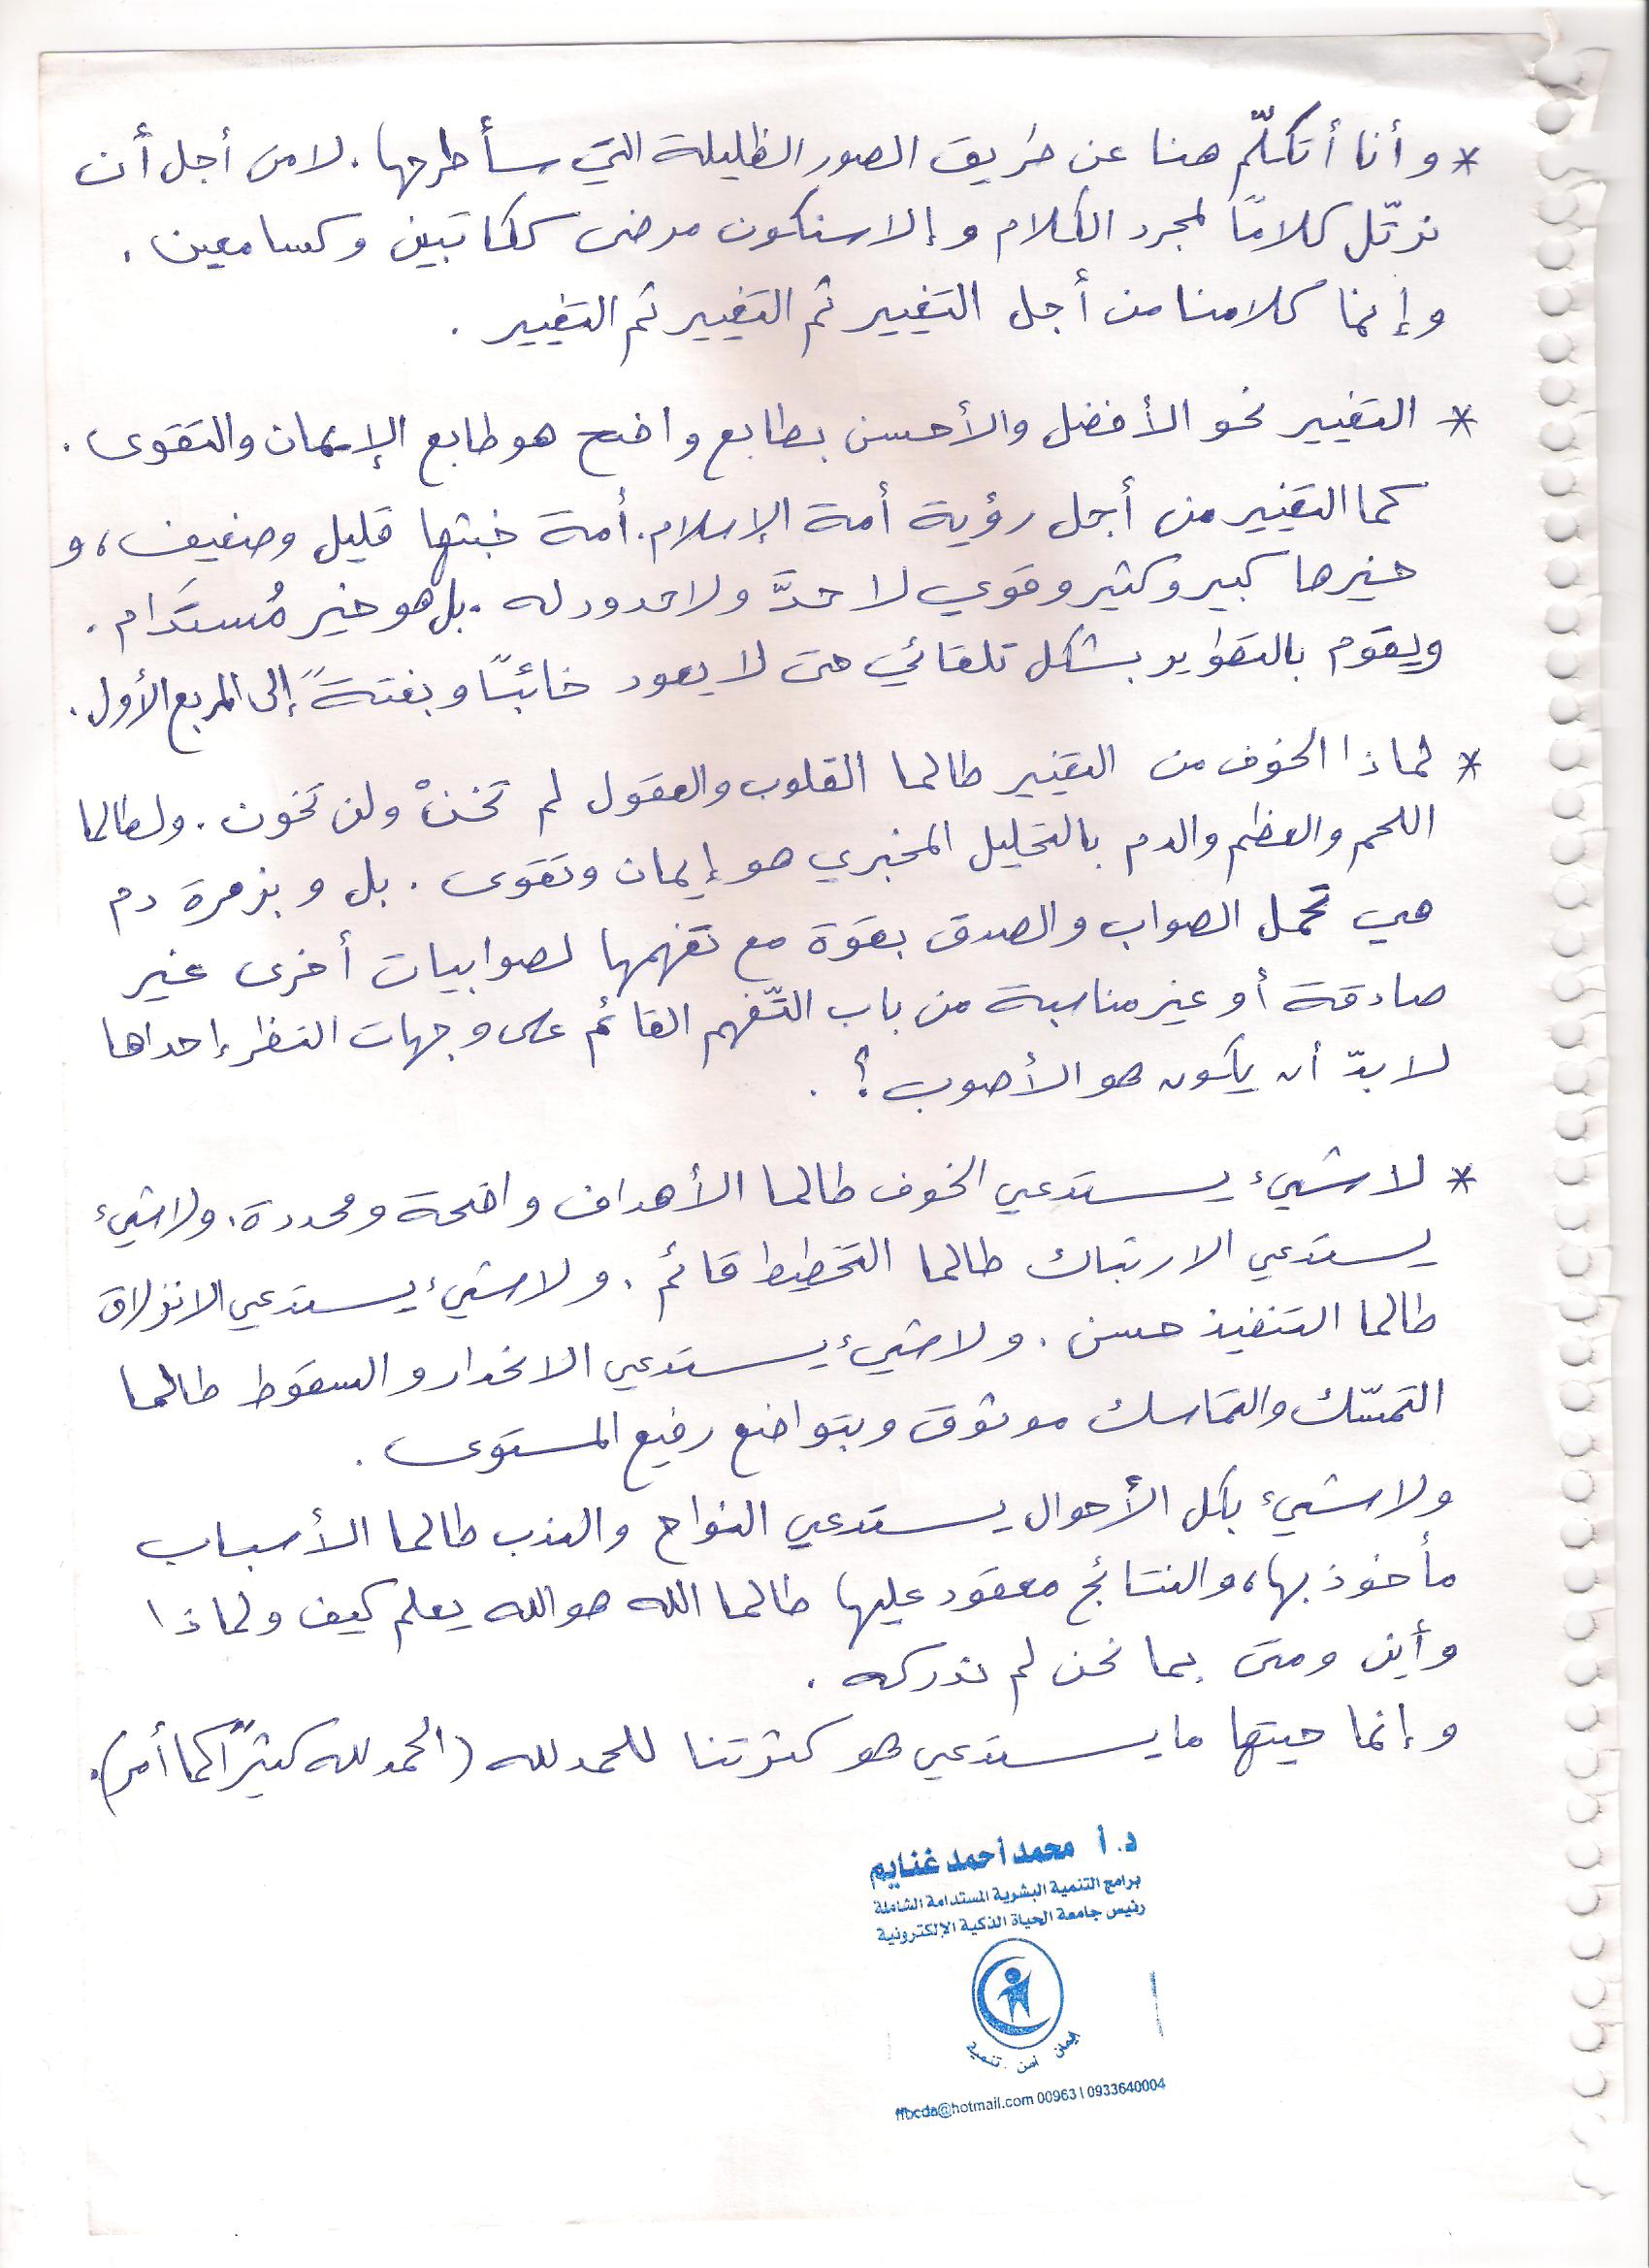 * وأنا أتكلّم هنا عن طريق الصور الظليلة التي سأطرحها. لا من أجل أن
نرتّل كلامًا لمجرد الكلام وإلا سنكون مرضى ككاتبين وكسامعين.
وإنما كلامنا من أجل التغيير ثم التغيير ثم التغيير.
* التغيير نحو الأفضل والأحسن بطابع واضح هو طابع الإيمان والتقوى.
كما التغيير من أجل رؤية أمة الإسلام. أمة خبثها قليل وضعيف، و
خيرها كبير وكثير وقوي لا حدَّ ولا حدود له. بل هو خير مُستَدَام.
ويقوم بالتطوير بشكل تلقائي حتى لا يعود خائبًا وبغتةً إلى المربع الأول.
* لماذا الخوف من التغيير طالما القلوب والعقول لم تخنْ ولن تخون. ولطالما
اللحم والعظم والدم بالتحليل المخبري هو إيمان وتقوى. بل وبزمرة دم
هي تحمل الصواب والصدق بقوة مع تفهمها لصوابيات أخرى غير
صادقة أو غير مناسبة من باب التّفهم القائم على وجهات النظر إحداها
لا بدّ أن يكون هو الأصوب؟.
* لا شيء يستدعي الخوف طالما الأهداف واضحة ومحددة. ولا شيء
يستدعي الارتباك طالما التخطيط قائم. ولا شيء يستدعي الانزلاق
طالما التنفيذ حسن. ولا شيء يستدعي الانحدار والسقوط طالما
التمسّك والتماسك موثوق وبتواضع رفيع المستوى.
ولا شيء بكل الأحوال يستدعي النواح والندب طالما الأسباب
مأخوذ بها، والنتائج معقود عليها طالما الله هو الله يعلم كيف ولماذا
وأين ومتى بما نحن لم ندركه.
وإنما حيتها ما يستدعي هو كثرتنا للحمد لله (الحمد لله كثيرًا كما أمر).
د. أ محمد أحمد غنايم
برامج التنمية البشرية المستدامة الشاملة
رئيس جامعة الحياة الذكية الإلكترونية
إيمان أمن تنمية
ffbcda@hotmail.com 00963 | 0933640004